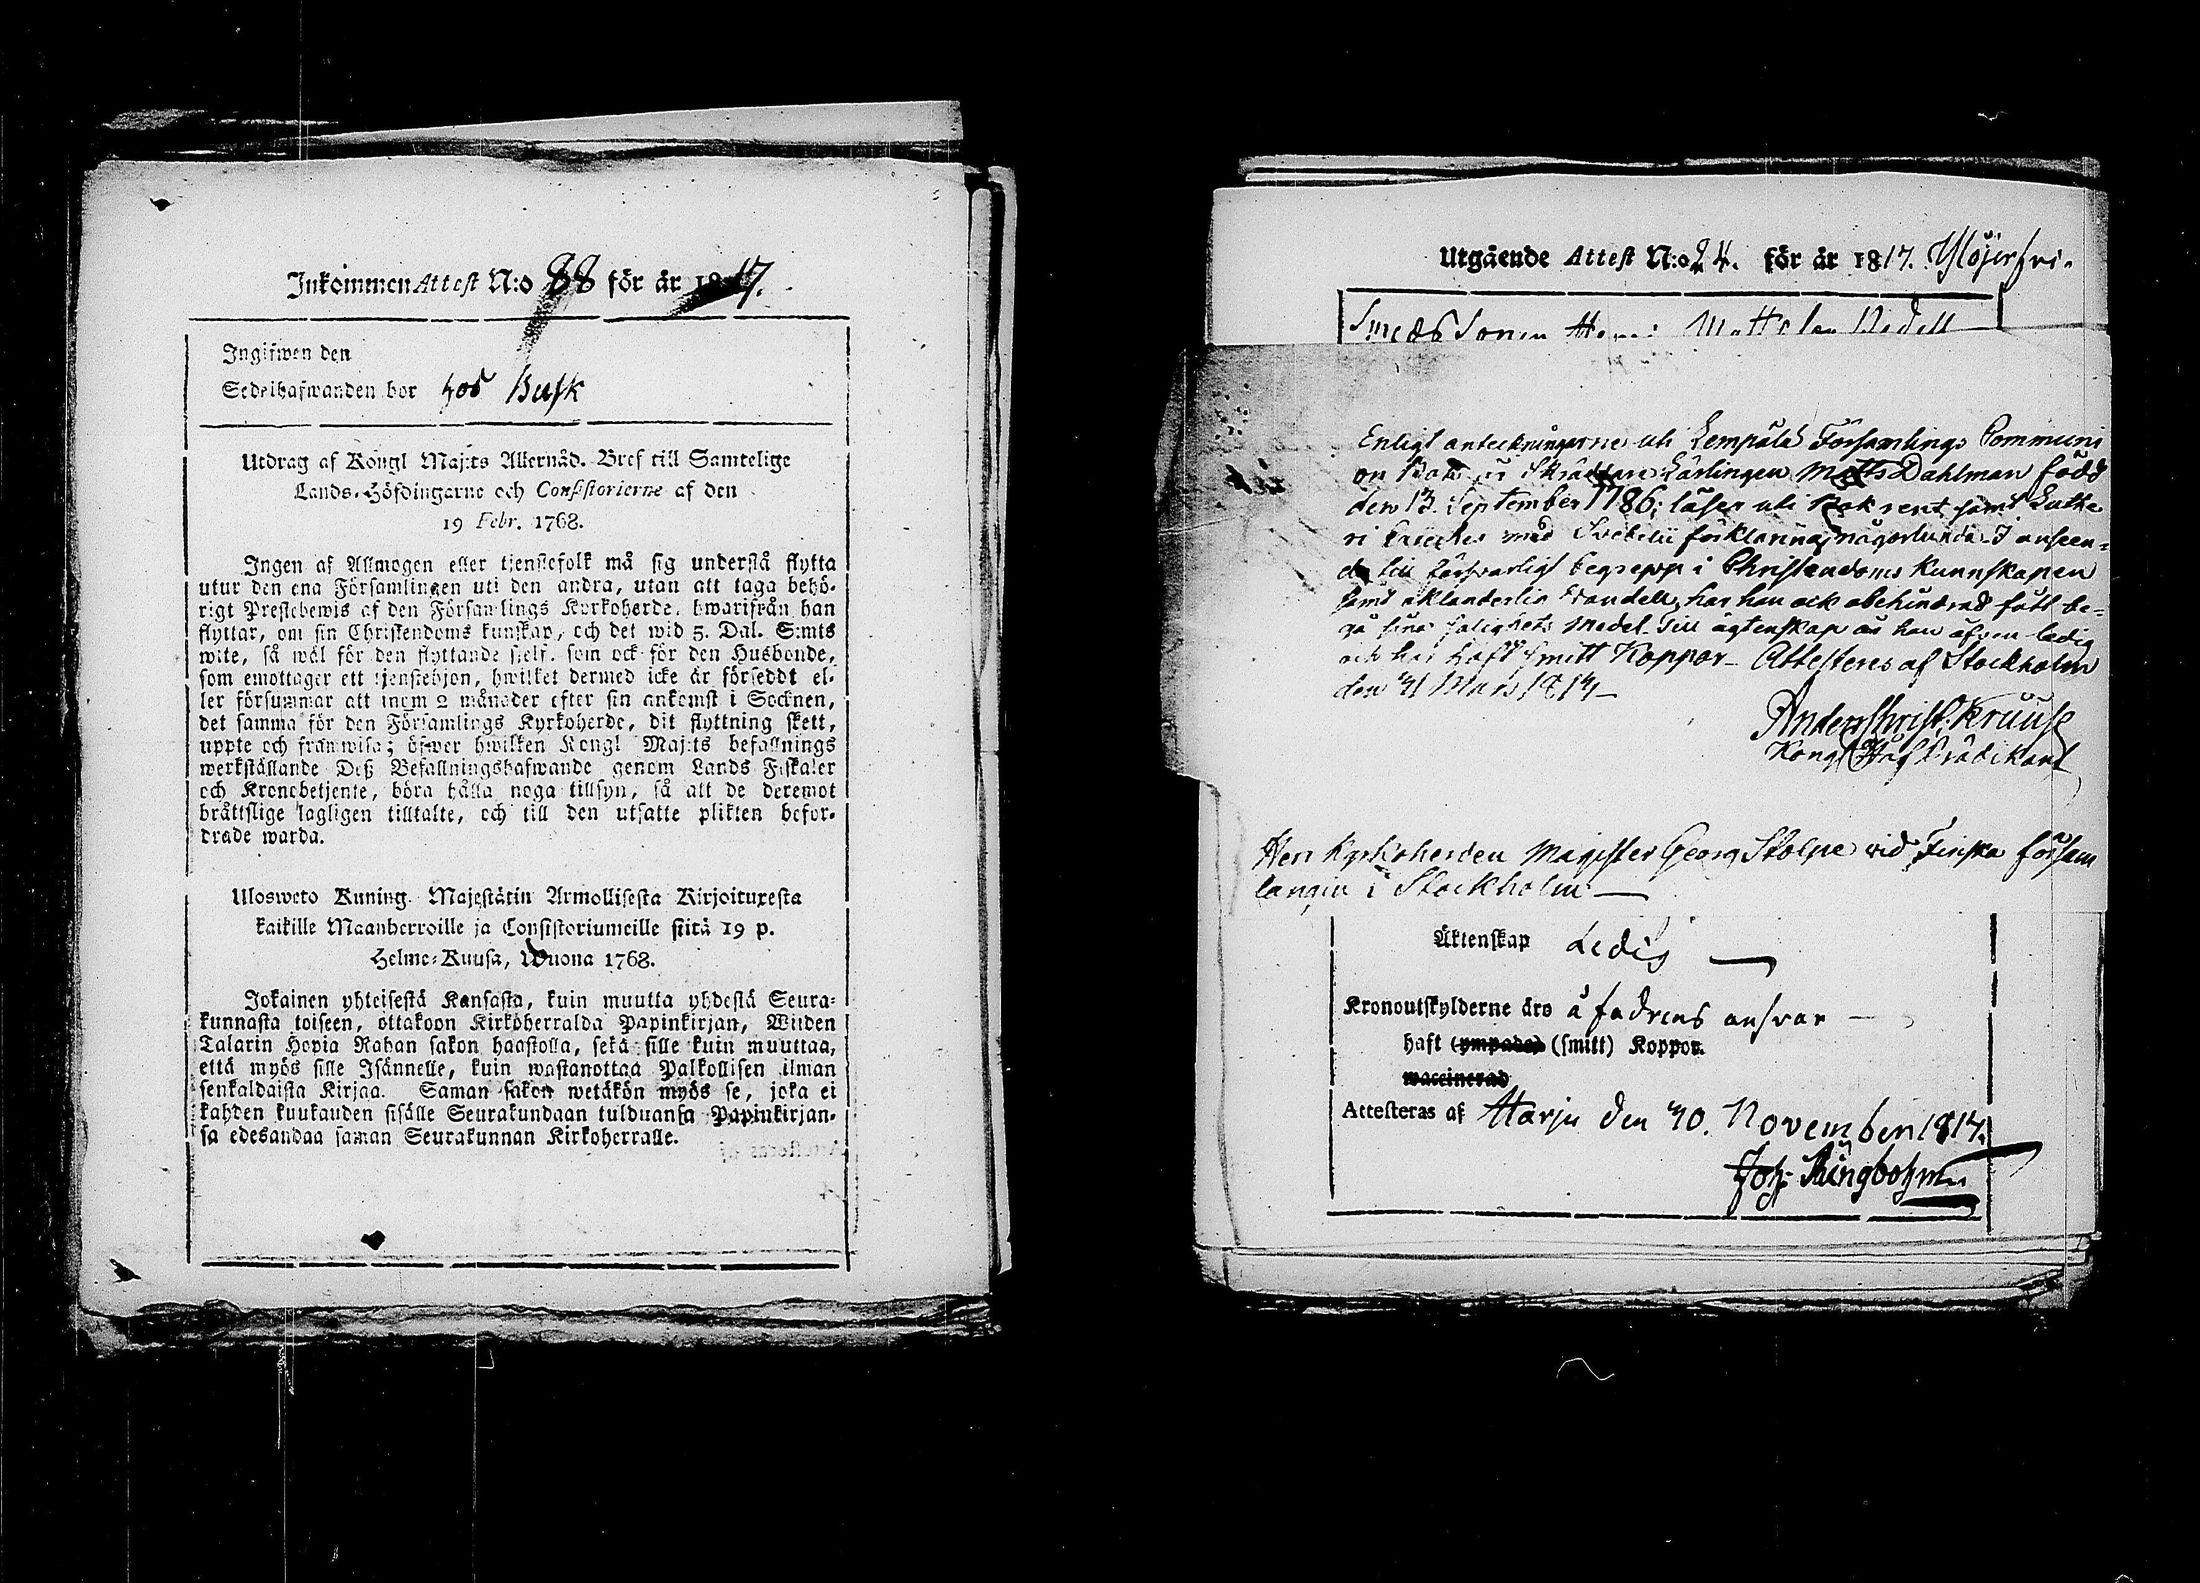 Inkommen Attest N:o 88 för år 1817.
Ingifwen den
Sedelhafwanden bor hos Busk
Utdrag af Kongl Maj:ts Allernåd. Bref till Samtelige
Lands-Höfdingarne och Consistorierne af den
19 Febr. 1768.
Ingen af Allmogen eller tjenstefolk må sig understå flytta
utur den ena Församlingen uti den andra, utan att taga behö-
rigt Prestebewis af den Församlings Kyrkoherde, hwarifrån han
flyttar, om sin Christendoms kunskap, och det wid 5. Dal. S:mts
wite, så wäl för den flyttande sjelf, som ock för den Husbonde,
som emottager ett tjenstehjon, hwilket dermed icke är förseddt el-
ler försummar att inom 2 månader efter sin ankomst i Socknen,
det samma för den Församlings Kyrkoherde, dit flyttning skett,
uppte och framwisa; öfwer hwilken Kongl Maj:ts befallnings
werkställande Deß Befallningshafwande genom Lands Fiskaler
och Kronobetjente, böra hålla noga tillsyn, så att de deremot
bråttslige lagligen tilltalte, och till den utsatte plikten befor-
drade warda.
Ulosweto Kuning. Majestätin Armollisesta Kirjoituxesta
kaikille Maanherroille ja Consistoriumeille siitä 19 p.
Helme-Kuusa, Wuona 1768.
Jokainen yhteisestä Kansasta, kuin muutta yhdestä Seura-
kunnasta toiseen, ottakoon Kirköherralda Papinkirjan, Wiiden
Talarin Hopia Rahan sakon haastolla, sekä sille kuin muuttaa,
että myös sille Isännelle, kuin wastanottaa Palkollisen ilman
senkaldaista Kirjaa. Saman sakon wetäkön myös se, joka ei
kahden kuukauden sisälle Seurakundaan tulduansa Papinkirjan-
sa edesandaa saman Seurakunnan Kirkoherralle.
Utgående Attest N:o 24. för år 1817. Ylöjerfvi.
Smedssonen Matts
Enligt anteckningarne uti Lempälä Församlings Communi
on Bok är Skräddare Lärlingen Matts Dahlman född
den 13. September 1786; läser uti Bok rent samt Luthe
ri Cateches med Svebelii förklaring någorlunda. I anseen-
de till försvarligt begrepp i Christendoms Kunnskapen
samt oklanderlig Vandell, har han ock obehindrad fått be-
gå sina salighets Medel. Till ägtenskap är han äfven ledig
och har haft smitt Koppor. Attesteres af Stockholm
den 31 Mars 1817
Anders Christ. Kruuse
Kongl Håf Prädikant
Herr Kyrkoherden Magister Georg Stolpe vid Finska försam
lingin i Stockholm
Äktenskap Ledig
Kronoutskylderne äro å fadrens ansvar
haft (ympade) (smitt) Koppor.
waccinerad
Attesteras af Harju den 30. November 1817.
Joh. Ringbohm